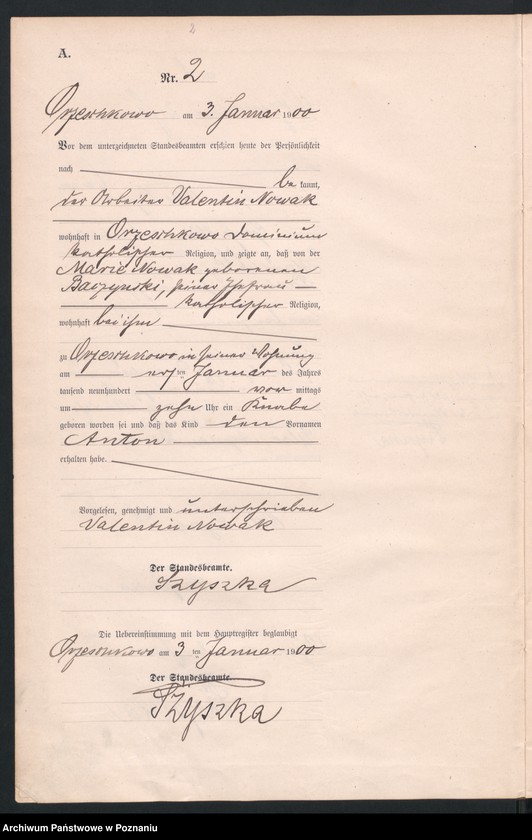 2
A.
Nr. 2
Orzeschkowo am 3. Januar 1900
Vor dem unterzeichneten Standesbeamten erschien heute der Persönlichkeit
nach be kannt,
der Arbeiter Valentin Nowak
wohnhaft in Orzeschkowo Dominium
katholischer Religion, und zeigte an, daß von der
Marie Nowak geborenen
Baczynski, seiner Ehefrau
katholischer Religion,
wohnhaft bei ihm
zu Orzeschkowo in seiner Wohnung
am ersten Januar des Jahres
tausend neunhundert vor mittags
um zehn Uhr ein Knabe
geboren worden sei und daß das Kind den Vornamen
Anton
erhalten habe.
Vorgelesen, genehmigt und unterschrieben
Valentin Nowak
Der Standesbeamte.
Szyszka
Die Uebereinstimmung mit dem Hauptregister beglaubigt
Orzeschkowo am 3 ten Januar 1900
Der Standesbeamte.
Szyszka
Archiwum Państwowe w Poznaniu